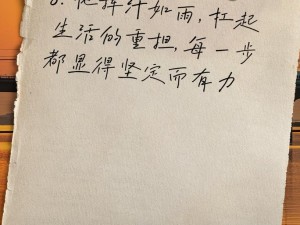 挥汗如雨，扛起
生活的重担，每一步
都显得坚定而有力